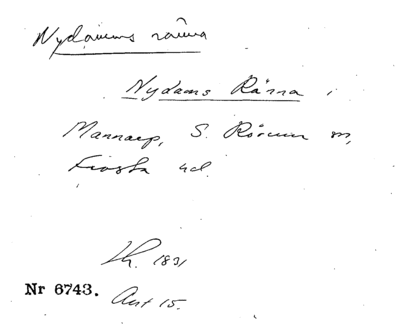 Nydams ränna
Nydams Ränna i
Mannarp, S. Rörum sn,
Frosta hd.
Lh. 1831
Nr 6743. Avt 15.